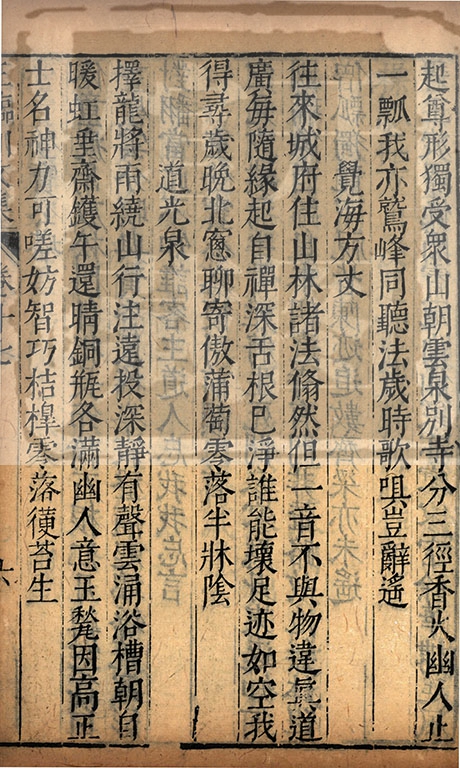 起尊形獨受衆山朝雲泉別寺分三徑香火幽人止
一瓢我亦鷲峰同聽法歲時歌唄豈辭遙
覺海方丈
往來城府住山林諸法翛然但一音不與物違眞道
廣每隨緣起自禪深舌根已淨誰能壞足迹如空我
得尋歲晚北窻聊寄傲蒲萄零落半牀陰
道光泉
擇龍將雨繞山行注遠投深靜有聲雲涌浴槽朝自
暖虹垂齋鑊午還晴銅瓶各滿幽人意玉甃因高正
士名神力可嗟妨智巧桔槹零落苔生
王臨川文集 卷十七